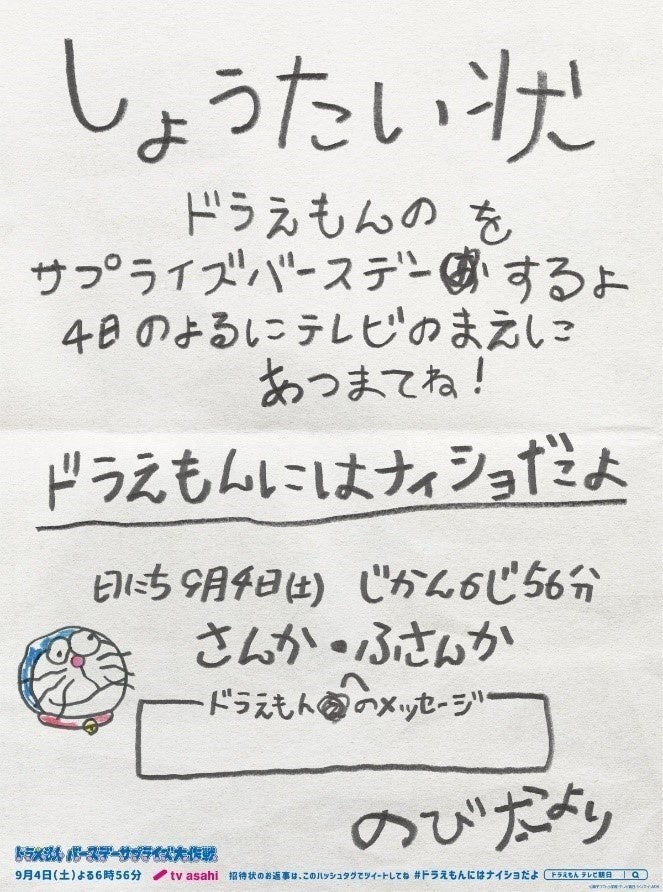 しょうたい状
ドラえもんの を
サプライズバースデー するよ
4日のよるにテレビのまえに
あつまてね！
ドラえもんにはナイショだよ
日にち 9月4日(土) じかん6じ56分
さんか・ふさんか
ドラえもん への メッセージ
のびたより
ドラえもん バースデーサプライズ大作戦
9月4日(土)よる6時56分 tv asahi 招待状のお返事は、このハッシュタグでツイートしてね #ドラえもんにはナイショだよ ドラえもん テレビ朝日